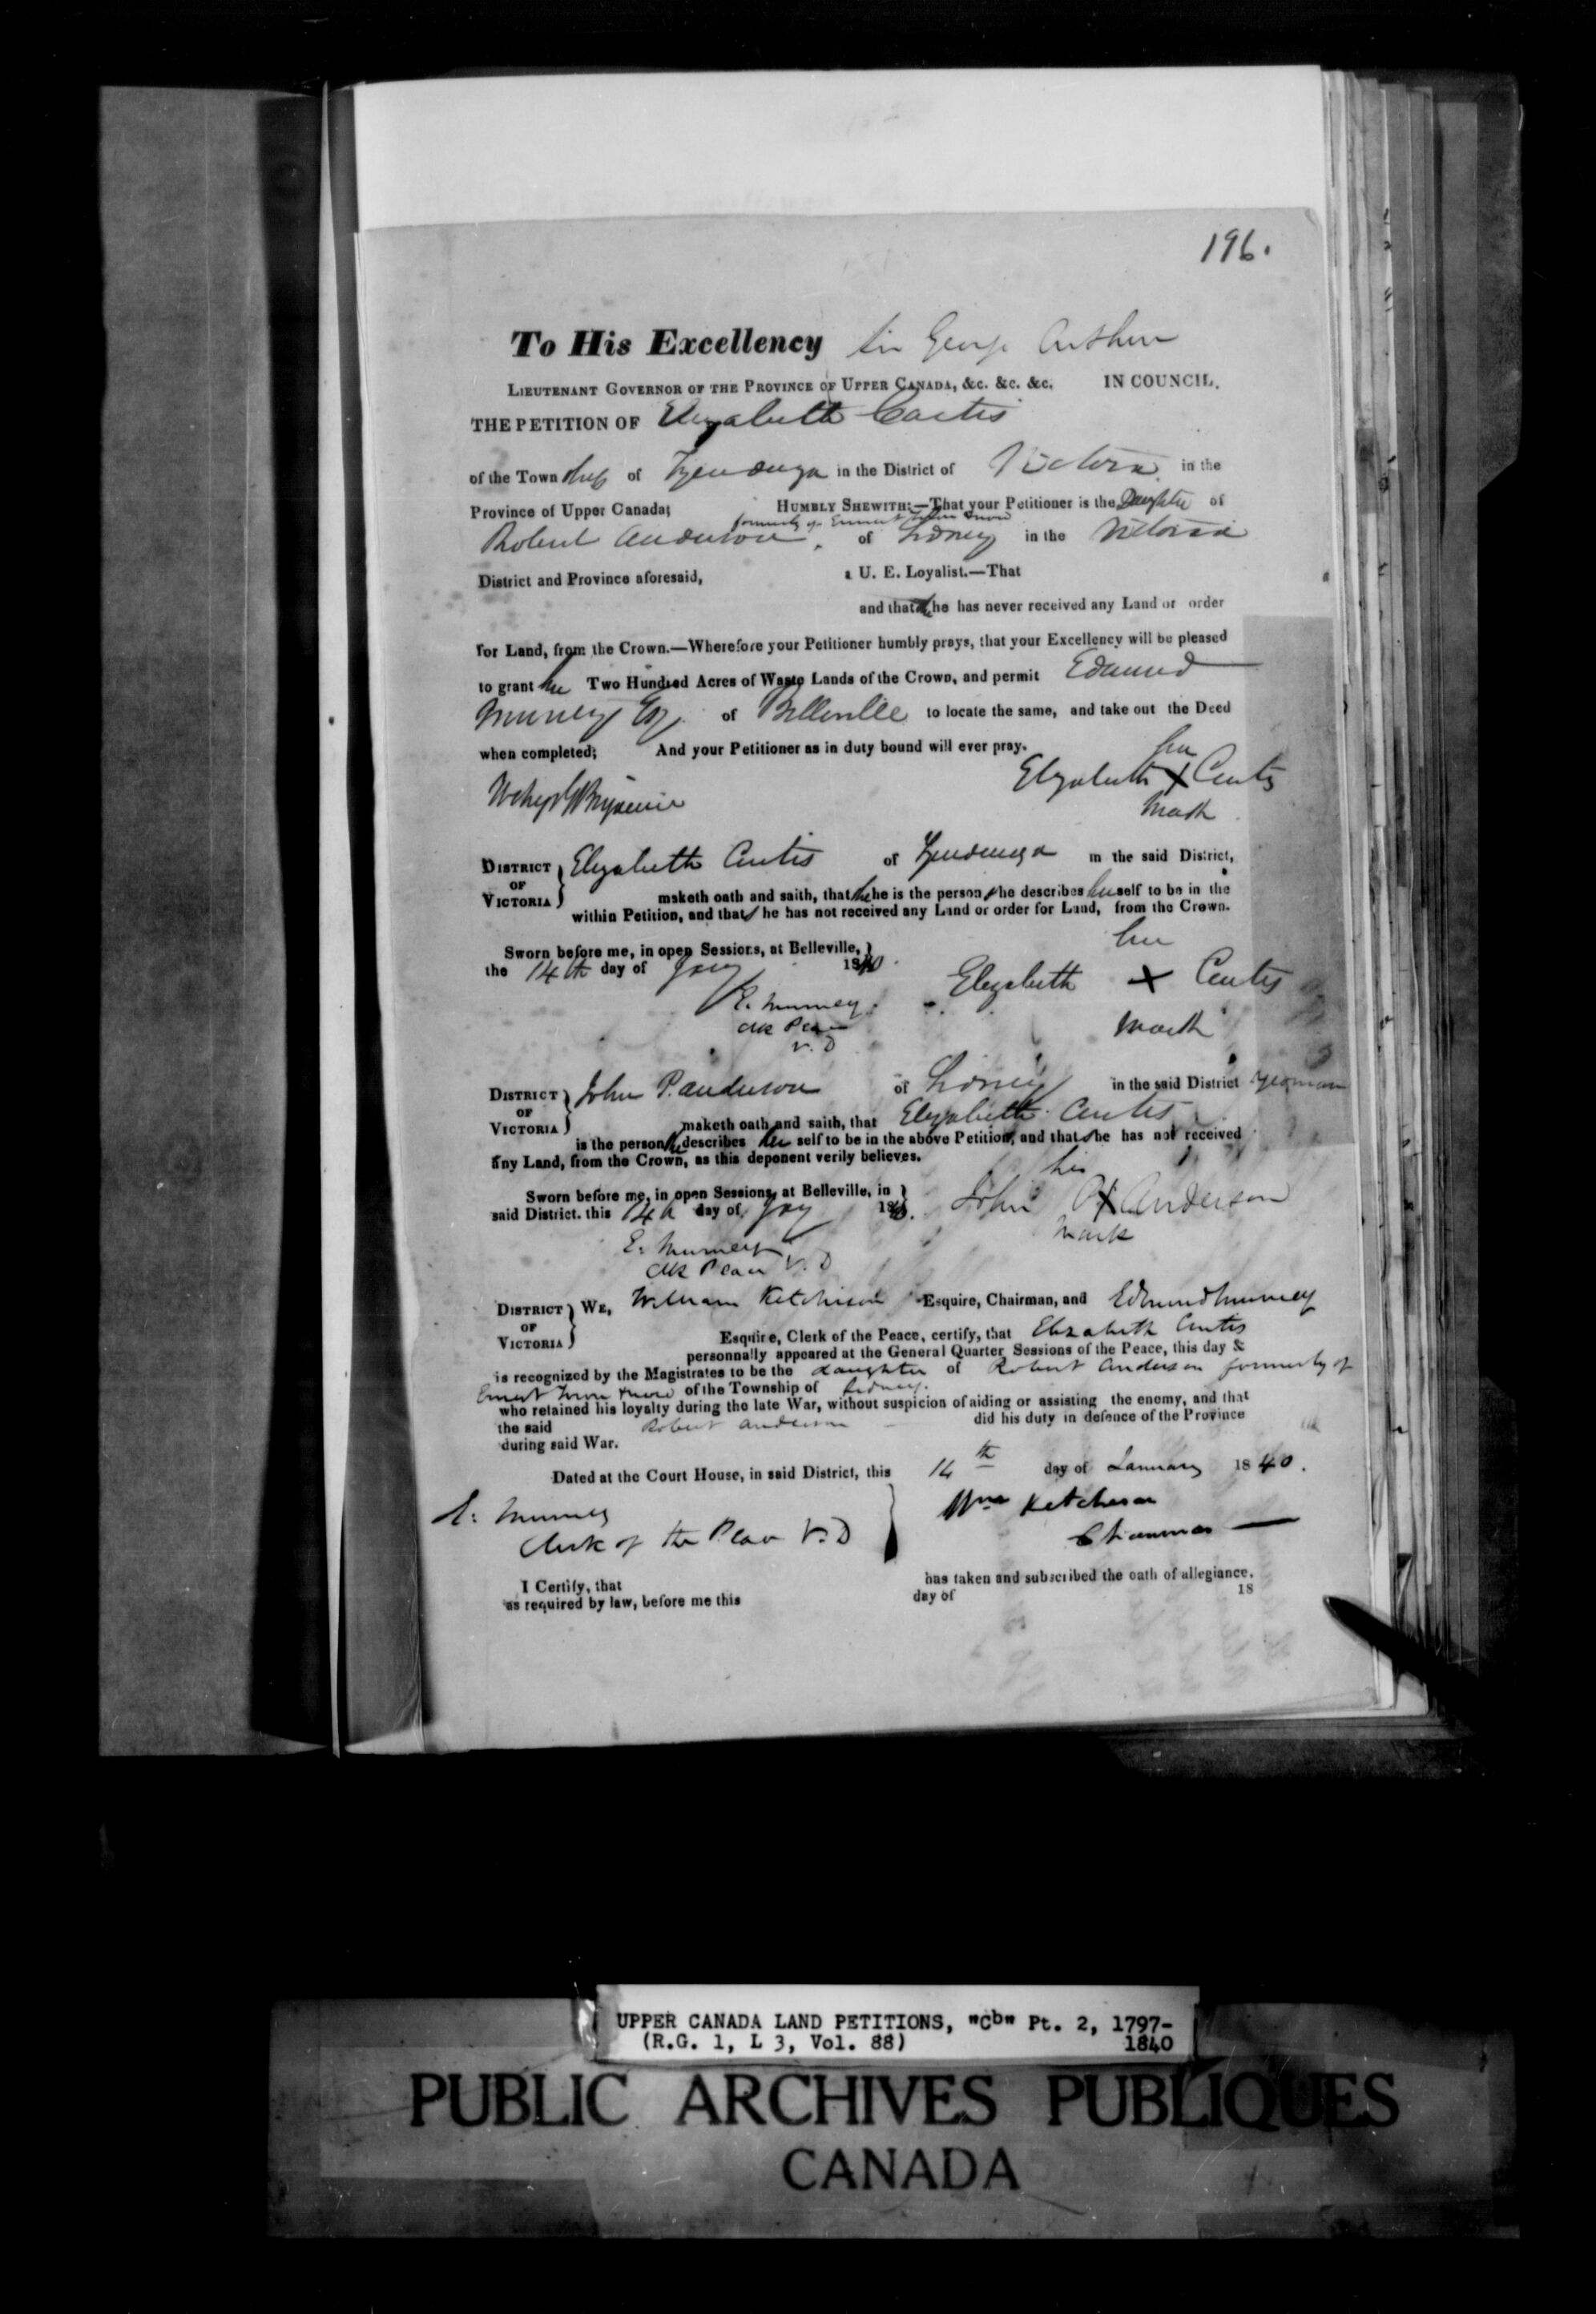 196.
To His Excellency Sir George Arthur
Lieutenant Governor of the Province of Upper Canada, &c. &c. &c. IN COUNCIL.
THE PETITION OF Elizabeth Curtis
of the Township of Tyendinaga in the District of Victoria in the
Province of Upper Canada; Humbly Shewith:—That your Petitioner is the Daughter of
formerly of Ernest Town & now
Robert Anderson, of Sidney in the Victoria
District and Province aforesaid, a U. E. Loyalist.—That
and that she has never received any Land or order
for Land, from the Crown.—Wherefore your Petitioner humbly prays, that your Excellency will be pleased
to grant her Two Hundred Acres of Waste Lands of the Crown, and permit Edmund
Murney Esq. of Belleville to locate the same, and take out the Deed
when completed; And your Petitioner as in duty bound will ever pray.
her
Elizabeth X Curtis
mark
District of Victoria } Elizabeth Curtis of Tyendinaga in the said District,
maketh oath and saith, that she he is the person she describes herself to be in the
within Petition, and that she has not received any Land or order for Land, from the Crown.
Sworn before me, in open Sessions, at Belleville, }
the 14th day of Jany 1840.
her
Elizabeth X Curtis
mark
E. Murney
Clk Peace
V. D
District of Victoria } John P. Anderson of Sidney in the said District yeoman
maketh oath and saith, that Elizabeth Curtis
is the person she describes her self to be in the above Petition, and that she has not received
any Land, from the Crown, as this deponent verily believes.
Sworn before me, in open Sessions, at Belleville, in }
said District. this 14th day of Jany 1840.
his
John P X Anderson
mark
E. Murney
Clk Peace V. D
District of Victoria } We, William Ketcheson Esquire, Chairman, and Edmund Murney
Esquire, Clerk of the Peace, certify, that Elizabeth Curtis
personnally appeared at the General Quarter Sessions of the Peace, this day &
is recognized by the Magistrates to be the daughter of Robert Anderson formerly of
Ernest Town & now of the Township of Sidney.
who retained his loyalty during the late War, without suspicion of aiding or assisting the enemy, and that
the said Robert Anderson did his duty in defence of the Province
during said War.
Dated at the Court House, in said District, this 14th day of January 1840.
E. Murney
Clerk of the Peace V. D
Wm Ketcheson
Chairman
I Certify, that has taken and subscribed the oath of allegiance.
as required by law, before me this day of 18
UPPER CANADA LAND PETITIONS, "Cb" Pt. 2, 1797-
(R.G. 1, L 3, Vol. 88) 1840
PUBLIC ARCHIVES PUBLIQUES
CANADA